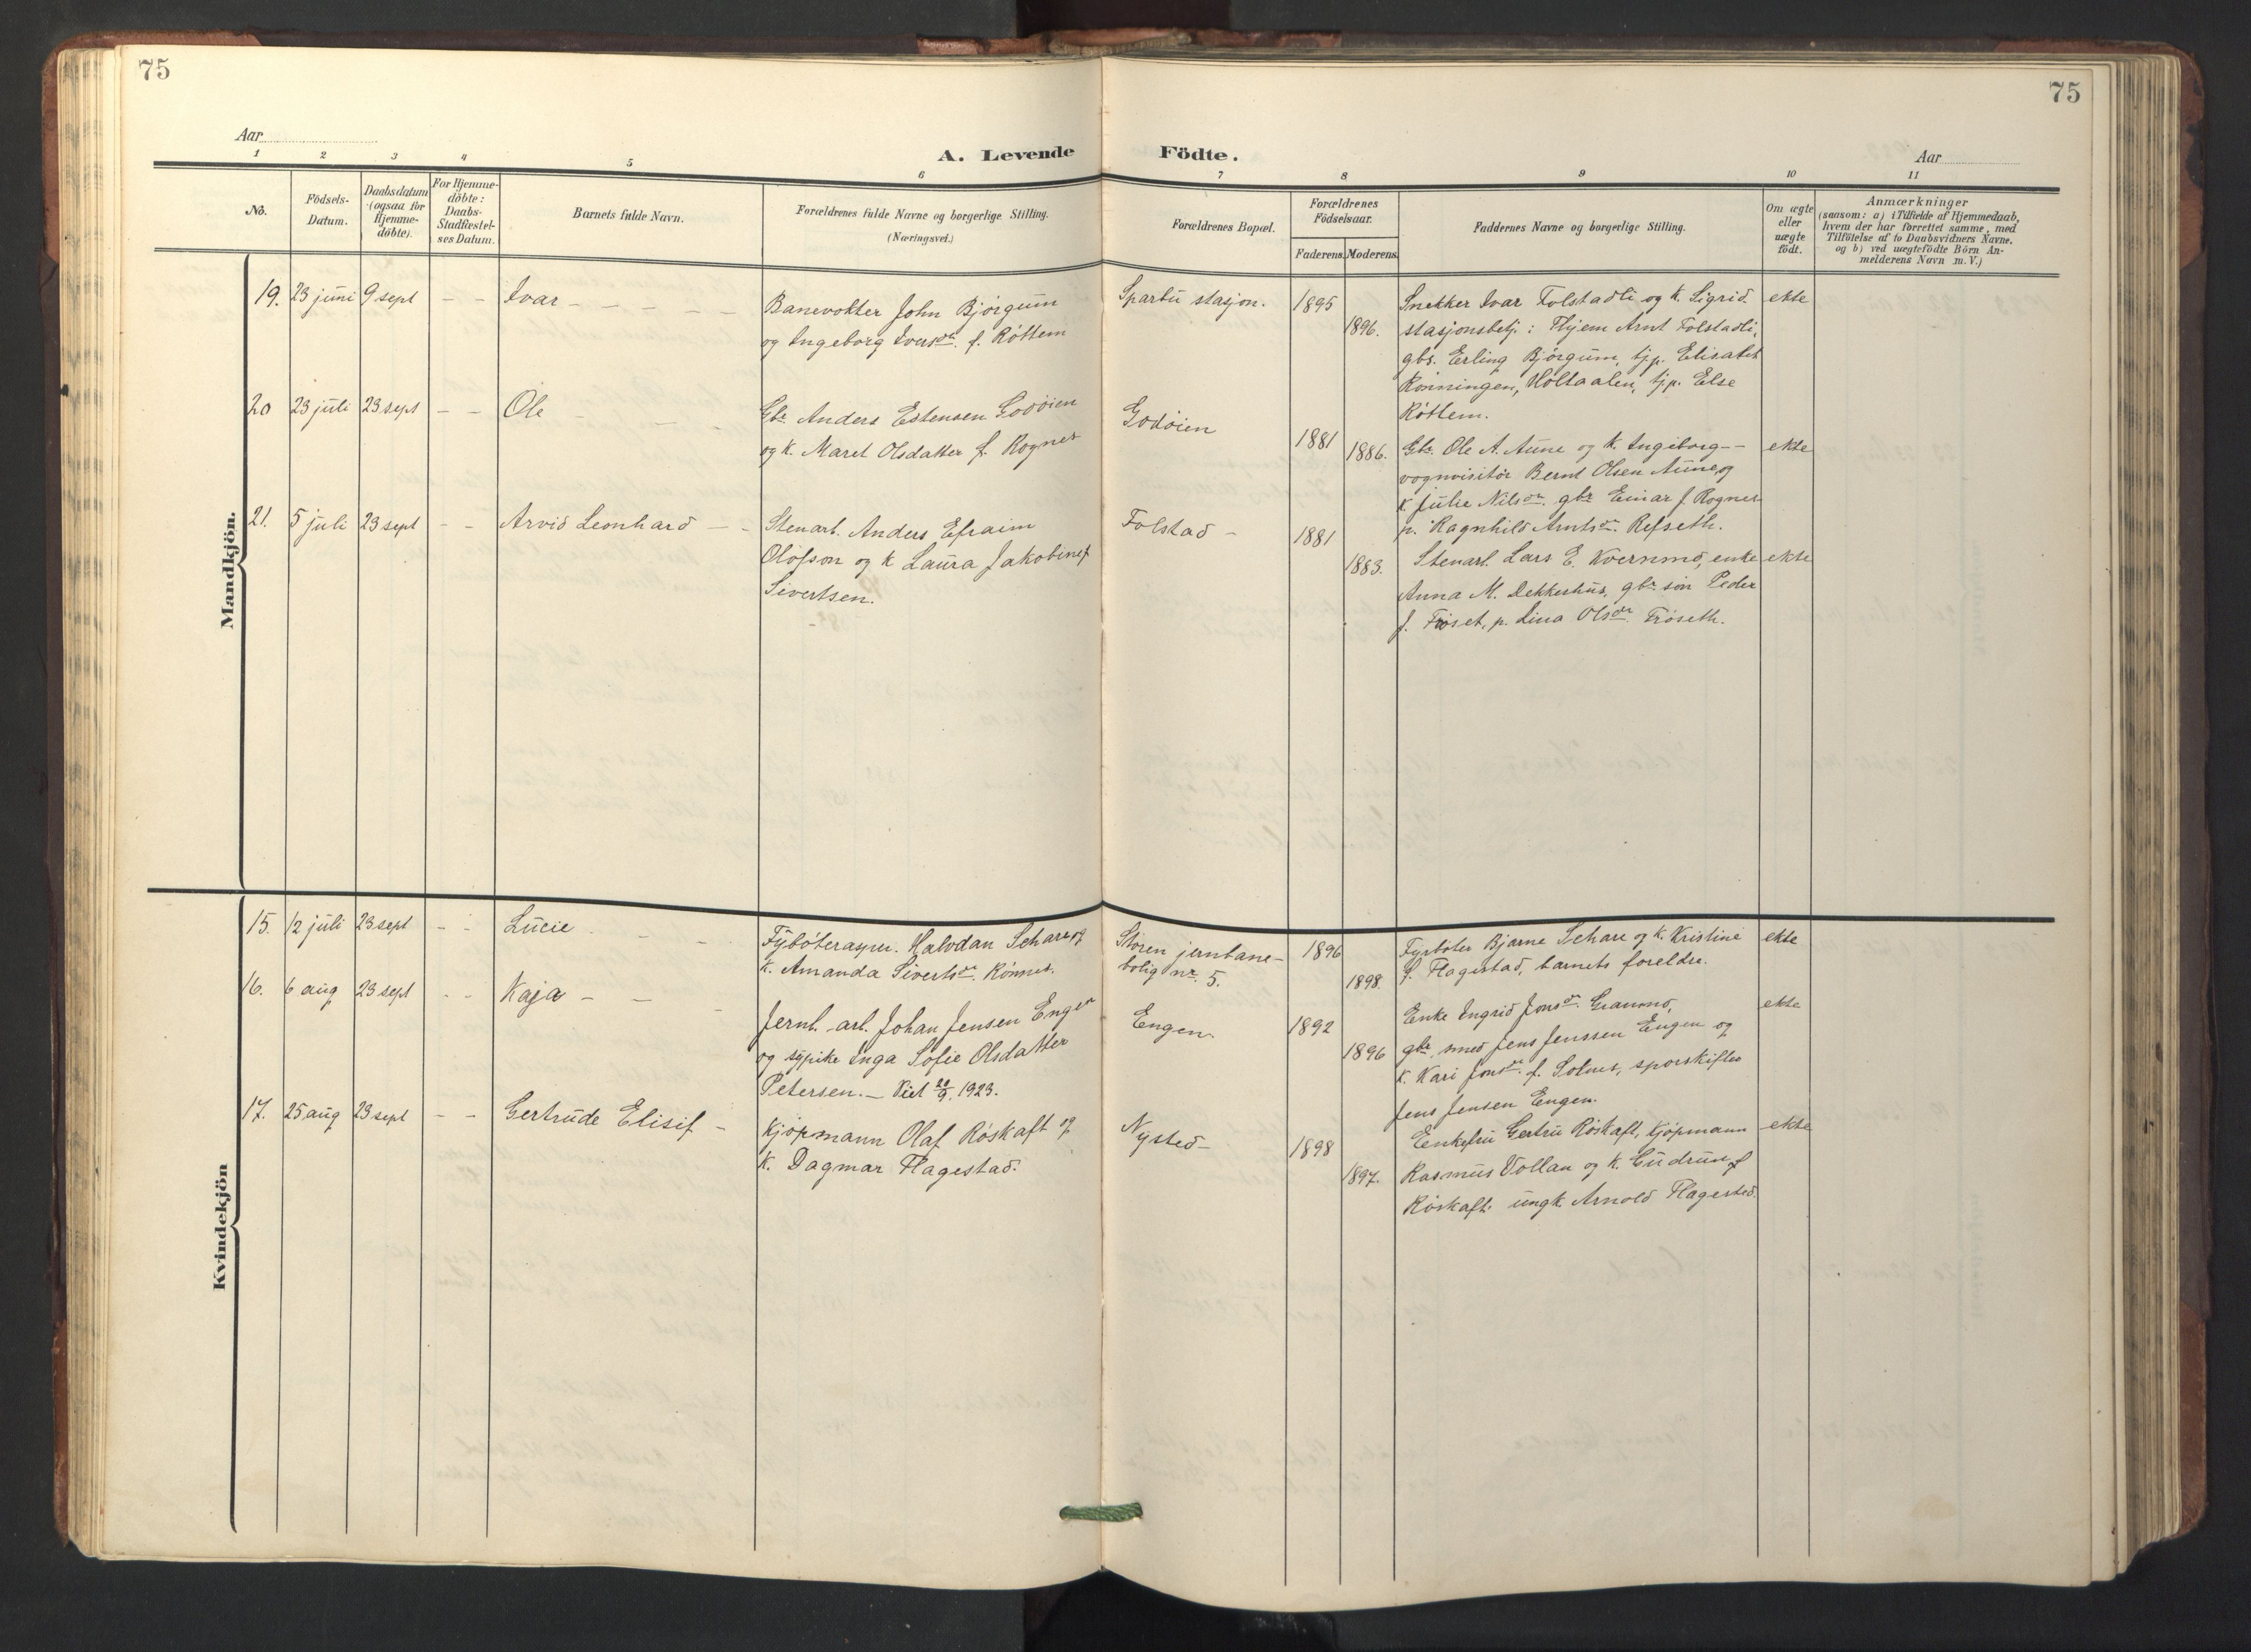 75
75
Aar
A. Levende Födte.
Aar
1 2 3 4 5 6 7 8 9 10 11
No.
Födsels-
Datum.
Daabsdatum
(ogsaa for
Hjemme-
döbte).
For Hjemme-
döbte:
Daabs-
Stadfæstel-
ses Datum.
Barnets fulde Navn.
Forældrenes fulde Navne og borgerlige Stilling.
(Næringsvei.)
Forældrenes Bopæl.
Forældrenes
Födselsaar.
Faderens. Moderens.
Faddernes Navne og borgerlige Stilling.
Om ægte
eller
uægte
födt.
Anmærkninger
(saasom: a) i Tilfælde af Hjemmedaab,
hvem der har forrettet samme, med
Tilföielse af to Daabsvidners Navne,
og b) ved uægtefödte Börn An-
melderens Navn m. V.)
Mandkjön.
19. 23 juni 9 sept - - Ivar - - - -
Banevokter John Bjørgum
og Ingeborg Iversdr. f. Røttem
Sparbu stasjon.
1895
1896.
Snekker Ivar Folstadli og k. Sigrid
stasjonsbetj: Hjem Arnt Folstadli,
gbs. Erling Bjørgum, tjp. Elisabet
Rønningen, Holtaalen, tjp. Else
Røttem.
ekte
20 23 juli 23 sept - - Ole -
Gbr. Anders Estensen Godøien
og k. Maret Olsdatter f. Rognes
Godøien
1881
1886.
Gbr. Ole A. Aune og k. Ingeborg -
vognvisitør Bernt Olsen Aune og
k. Julie Nilsdr. gbr Einar J. Rognes
p. Ragnhild Arntsdr. Refseth.
ekte
21. 5 juli 23 sept - - Arvid Leonhard - -
Stenarb. Anders Efraim
Olofson og k Laura Jakobine f
Sivertsen.
Folstad -
1881
1883.
Stenarb. Lars E. Kvernmo, enke
Anna M. Dekkerhus, gbr. søn Peder
J. Frøset, p. Lina Olsdr. Frøseth.
ekte
Kvindekjön
15. 12 juli 23 sept - - Lucie - - -
Fybøteraspir. Halvdan Schare og
k. Amanda Sivertsdr. Rønnes.
Støren jernbane-
bolig nr. 5.
1896
1898.
Fyrbøter Bjarne Schare og k. Kristine
f. Flagestad, barnets foreldre.
ekte
16. 6 aug 23 sept - - Kaja - - -
Jernb. arb. Johan Jensen Engen
og sypike Inga Sofie Olsdatter
Petersen. - Viet 22/9. 1923.
Engen.
1892
1896
Enke Ingrid Jonsdr. Granmo,
gbr, smed Jens Jenssen Engen og
k. Kari Jonsdr. f. Solnes, sporskifter
Jens Jensen Engen.
ekte
17. 25 aug 23 sept - - Gertrude Elisif -
Kjøpmann Olaf Røskaft og
k. Dagmar Flagestad.
Nysted -
1898
1897.
Enkefru Gertru Røskaft, kjøpmann
Rasmus Vollan og k. Gudrun f
Røskaft. ungk. Arnold Flagested.
ekte